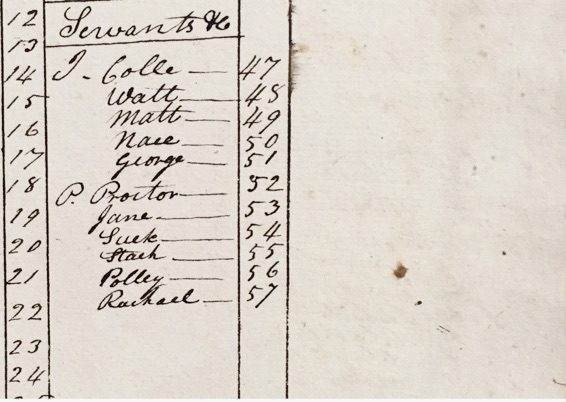 12 Servants &c
13
14 J. Colle — 47
15 Watt — 48
Matt — 49
16 Nace — 50
17 George — 51
18 P. Proctor — 52
19 Jane — 53
20 Suck — 54
Stach — 55
21 Polley — 56
22 Rachael — 57
23
24